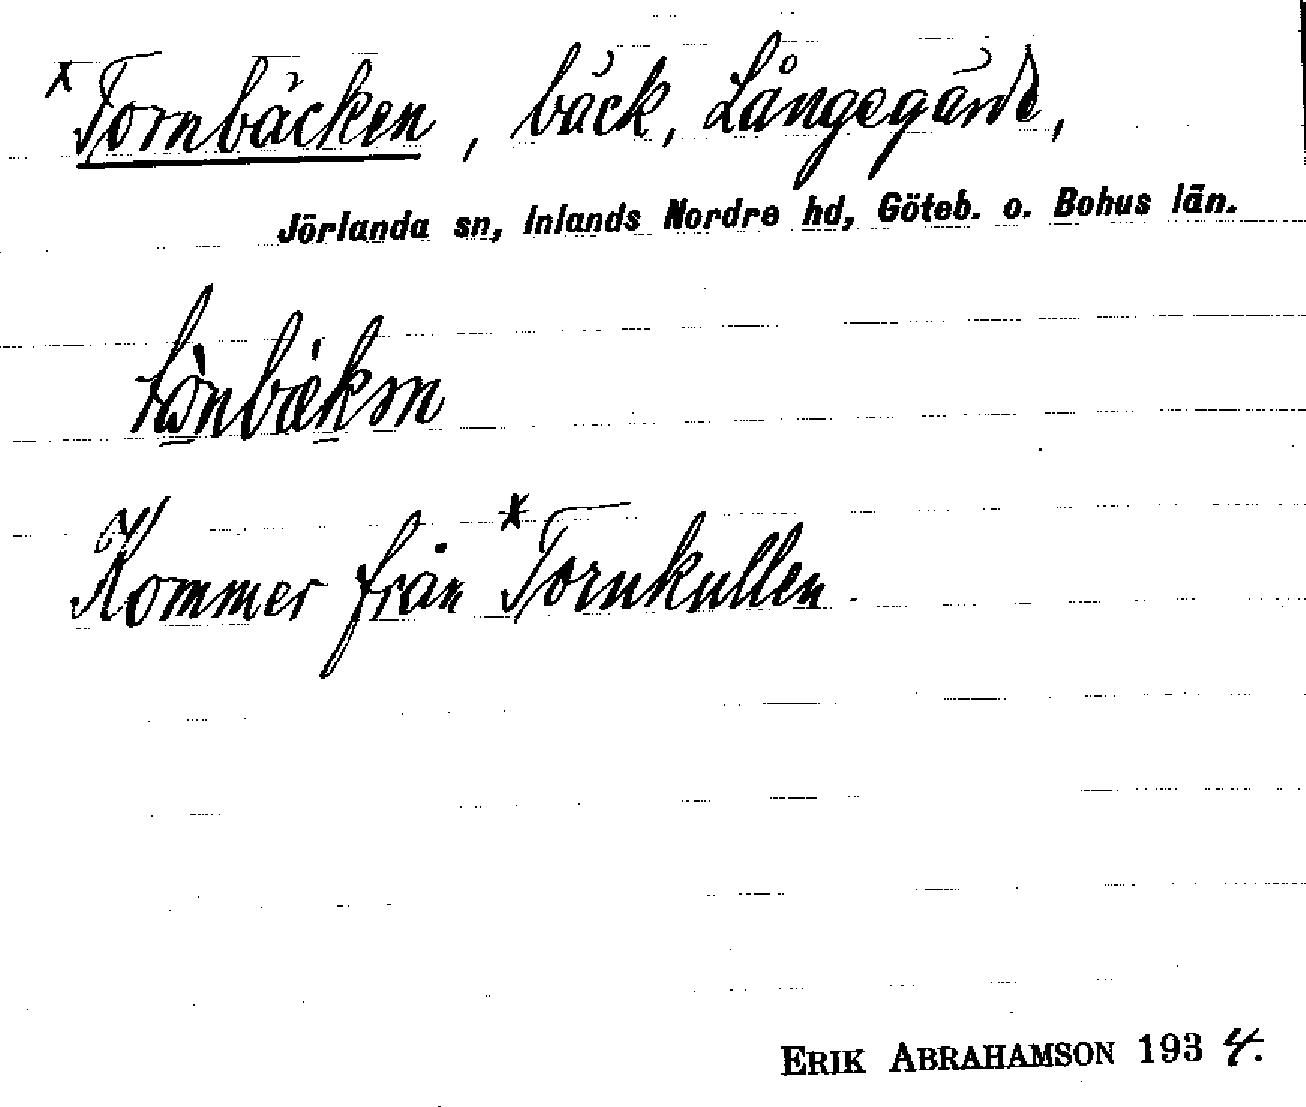 *Tornbäcken, bäck, Långegärde,
Jörlanda sn, Inlands Nordre hd, Göteb. o. Bohus län.
Kommer från *Tornkullen
ERIK ABRAHAMSON 1934.